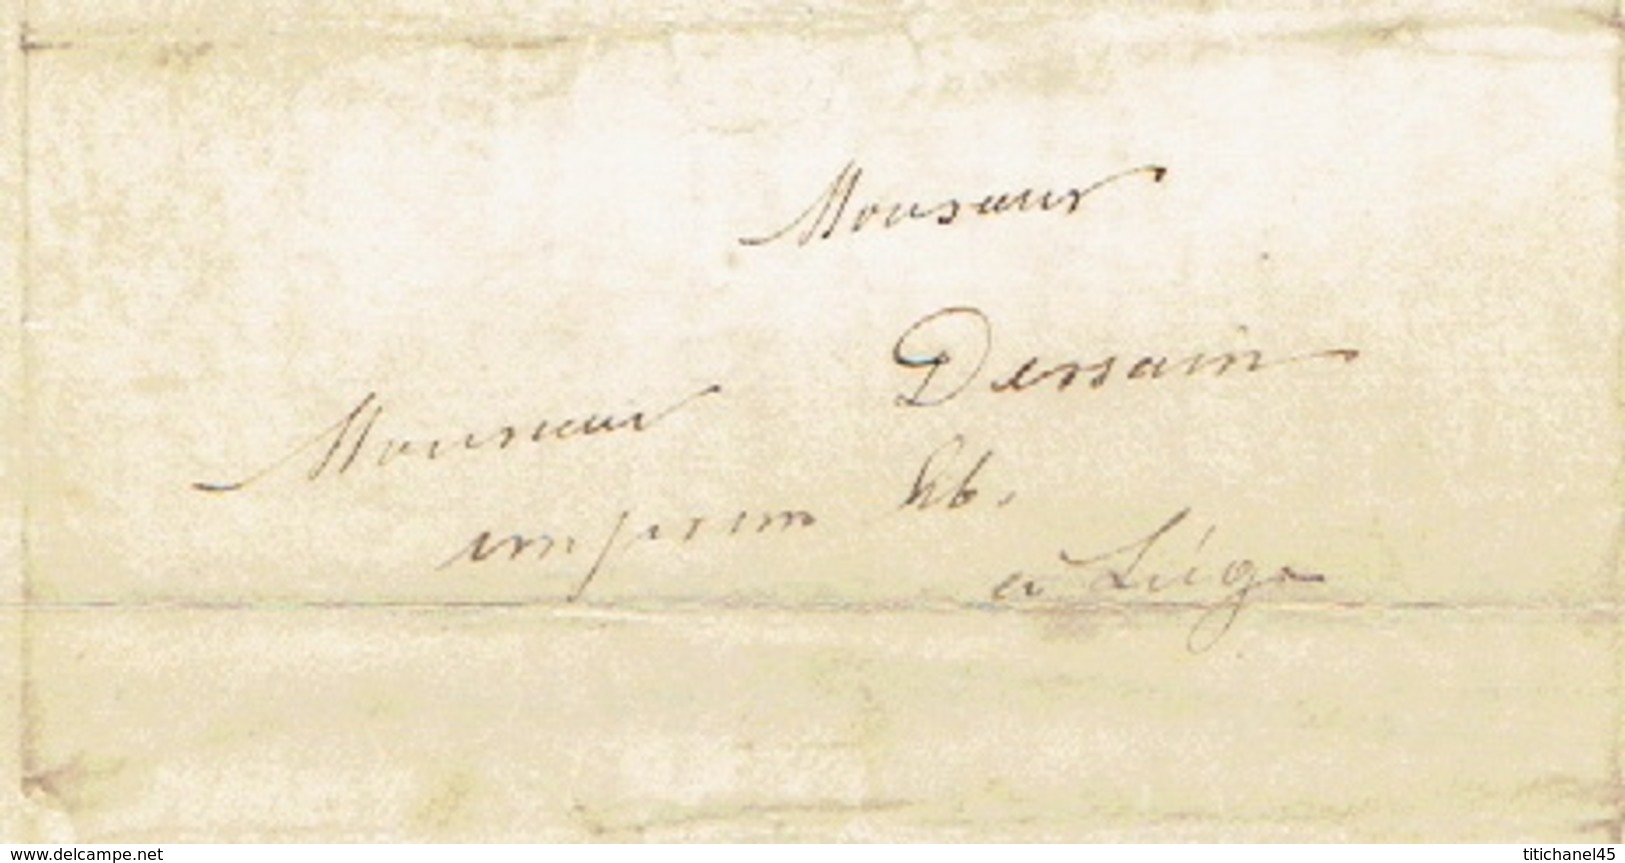 Monsieur
Monsieur Dessain
imprim lib.
à Liége
www.delcampe.net
titichanel45